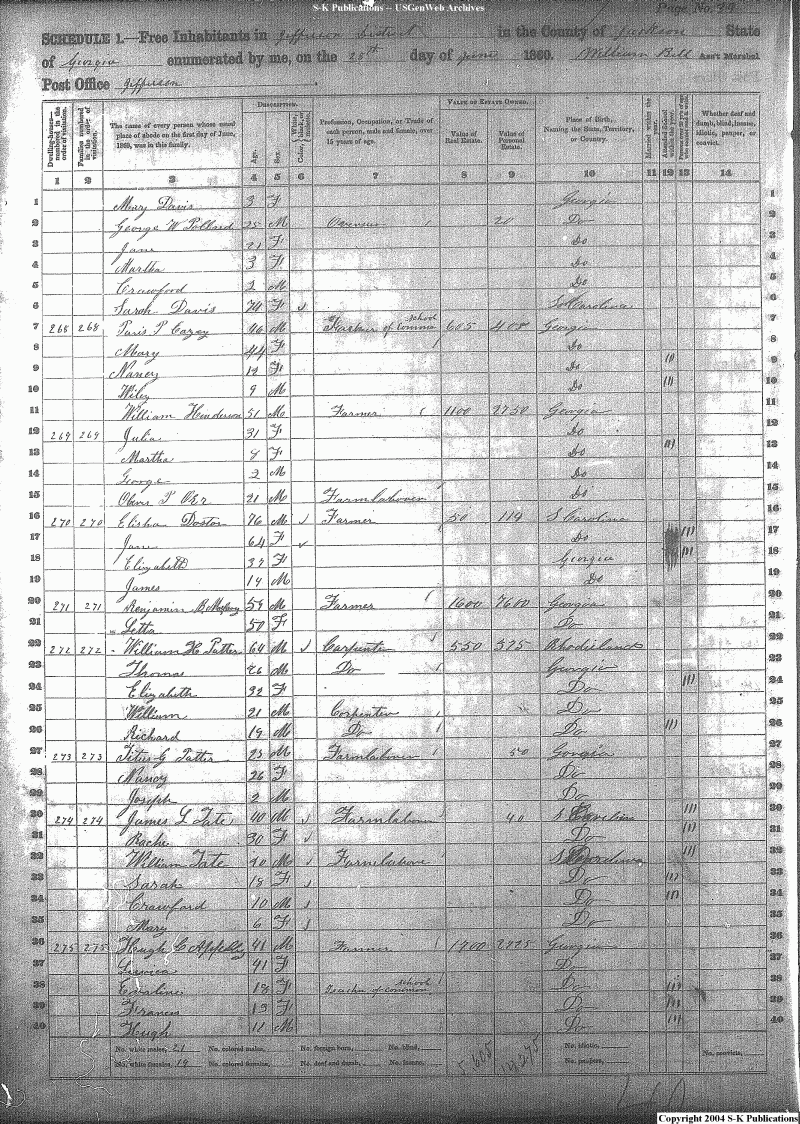 S-K Publications -- USGenWeb Archives
Page No. 29
SCHEDULE 1.—Free Inhabitants in Jefferson District in the County of Jackson State
of Georgia enumerated by me, on the 25th day of June 1860. William Bell Ass't Marshal
Post Office Jefferson
Dwelling-houses—numbered in the order of visitation.
Families numbered in the order of visitation.
The name of every person whose usual place of abode on the first day of June, 1860, was in this family.
DESCRIPTION.
Age.
Sex.
Color, White, black, or mulatto.
Profession, Occupation, or Trade of each person, male and female, over 15 years of age.
VALUE OF ESTATE OWNED.
Value of Real Estate.
Value of Personal Estate.
Place of Birth, Naming the State, Territory, or Country.
Married within the year.
Attended School within the year.
Whether deaf and dumb, blind, insane, idiotic, pauper, or convict.
1 2 3 4 5 6 7 8 9 10 11 12 13 14
1 Mary Davis 3 F Georgia 1
2 George W Pollard 25 M 20 Do 2
3 Jane 21 F Do 3
4 Martha 3 F Do 4
5 Crawford 2 M Do 5
6 Sarah Davis 74 F So Carolina 6
7 268 268 Paris P Cazey 46 M of Common school 605 408 Georgia 7
8 Mary 44 F Do 8
9 Nancy 12 F Do 9
10 Wiley 9 M Do 10
11 William Henderson 51 M Farmer 1100 2750 Georgia 11
12 269 269 Julia 31 F Do 12
13 Martha 8 F Do 13
14 George 2 M Do 14
15 21 M Farmlaborer Do 15
16 270 270 Elisha Doston 76 M Farmer 50 119 S Carolina 16
17 Jane 64 F Do 17
18 Elizabeth 37 F Georgia 18
19 James 14 M Do 19
20 271 271 Benjamin 59 M Farmer 1600 7600 Georgia 20
21 Letta 50 F Do 21
22 272 272 William H Patter 64 M Carpenter 550 325 Rhodeisland 22
23 Thomas 26 M Do Georgia 23
24 Elizabeth 32 F Do 24
25 William 21 M Carpenter Do 25
26 Richard 19 M Do Do 26
27 273 273 Titus G Patter 25 M Farmlaborer 50 Georgia 27
28 Nancy 26 F Do 28
29 Joseph 2 M Do 29
30 274 274 James L Tate 40 M Farmlaborer 40 S Carolina 30
31 Rache 30 F Do 31
32 William Tate 20 M Farmlaborer S Carolina 32
33 Sarah 18 F Do 33
34 Crawford 10 M Do 34
35 Mary 6 F Do 35
36 275 275 Hugh C Appelby 41 M Farmer 1700 2725 Georgia 36
37 41 F Do 37
38 Evaline 18 F Teacher of common school Do 38
39 Francis 13 F Do 39
40 Hugh 11 M Do 40
No. white males, 21 No. colored males, No. foreign born, No. blind, 5.605 14.275 No. idiotic,
No. white females, 19 No. colored females, No. deaf and dumb, No. insane, No. paupers, No. convicts,
Copyright 2004 S-K Publications